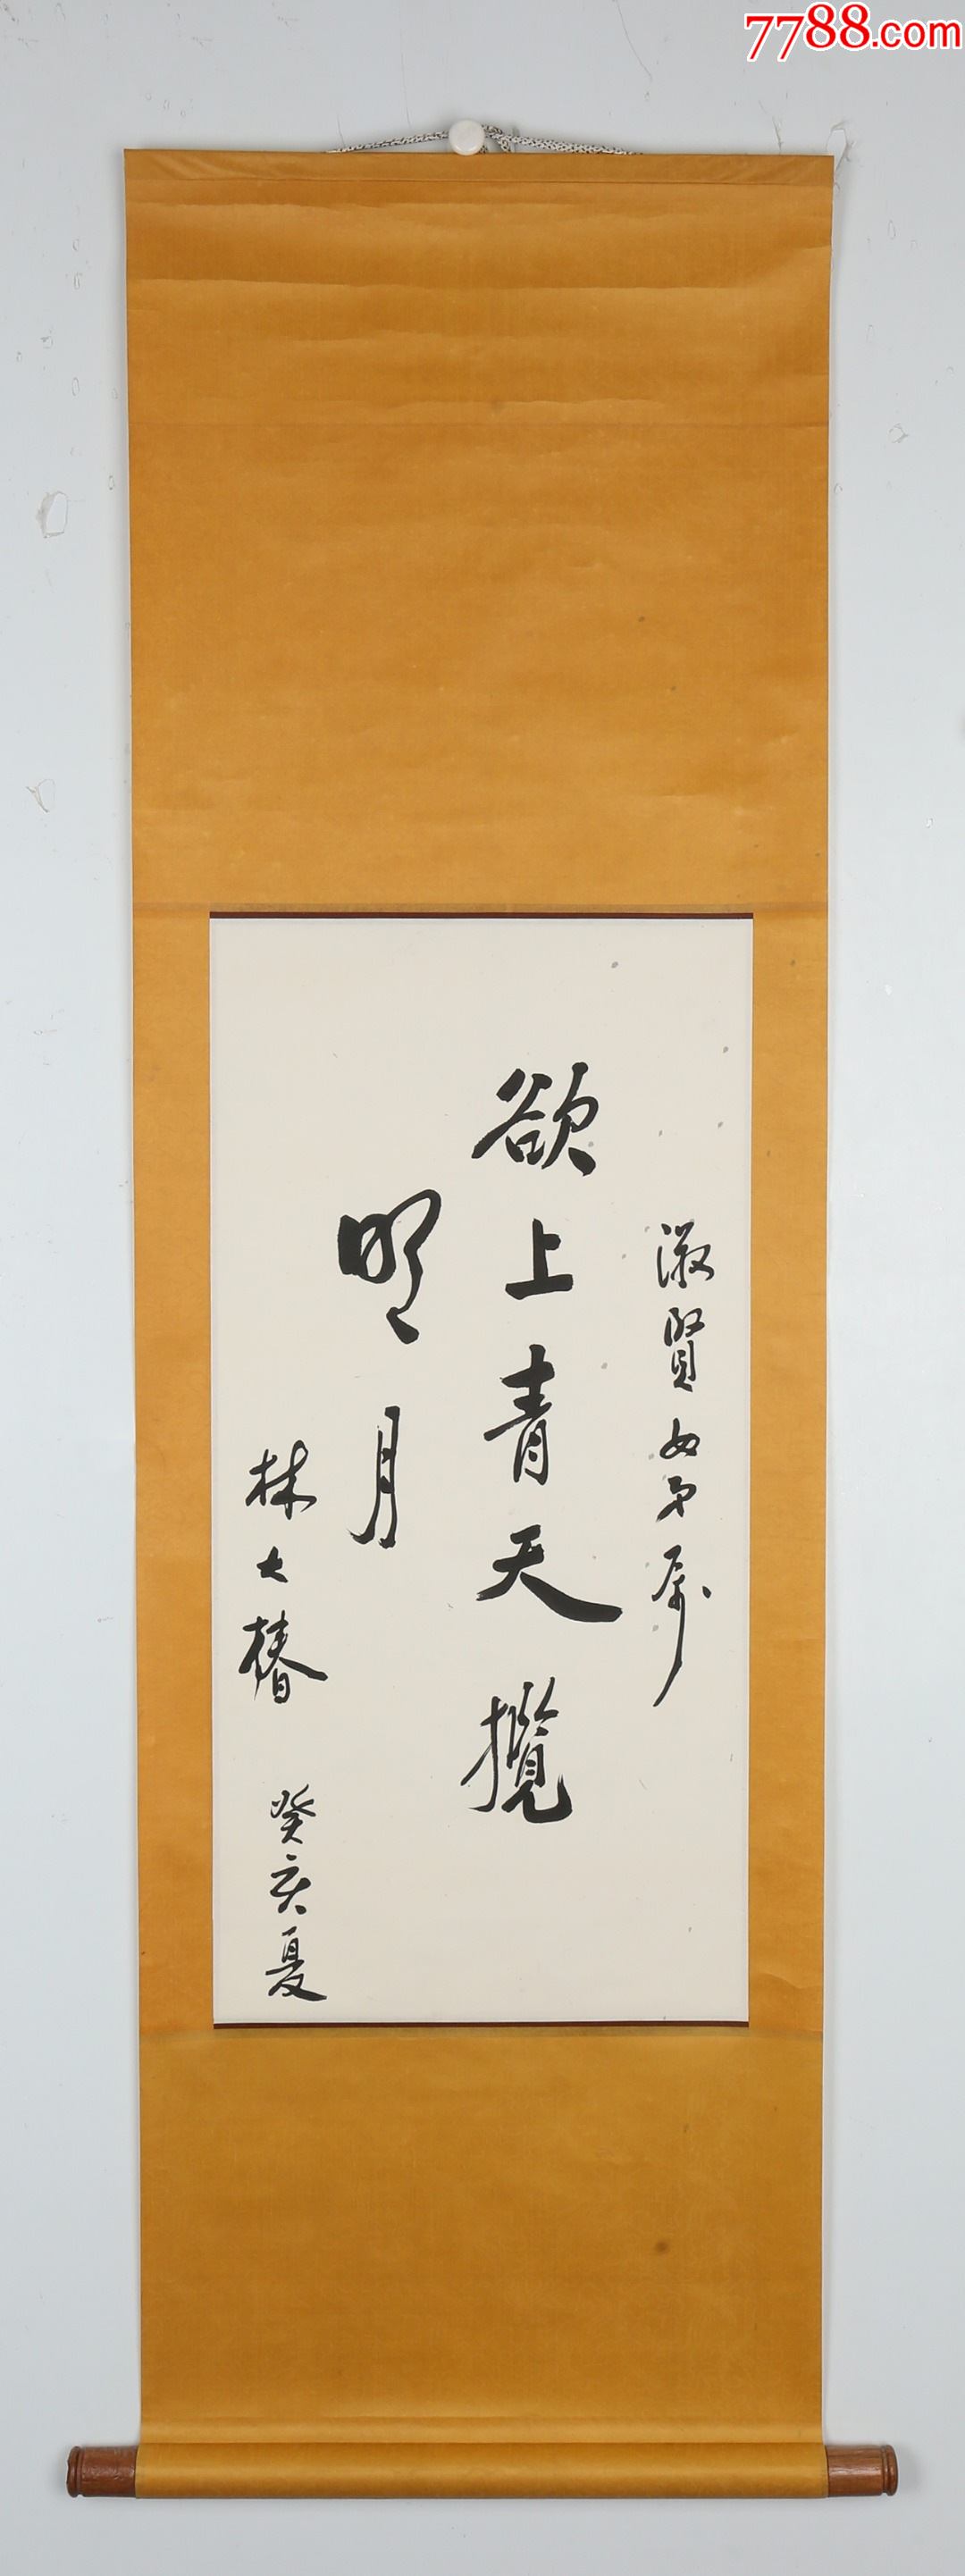 7788.com
淑賢女弟属
欲上青天攬
明月
林大椿 癸亥夏